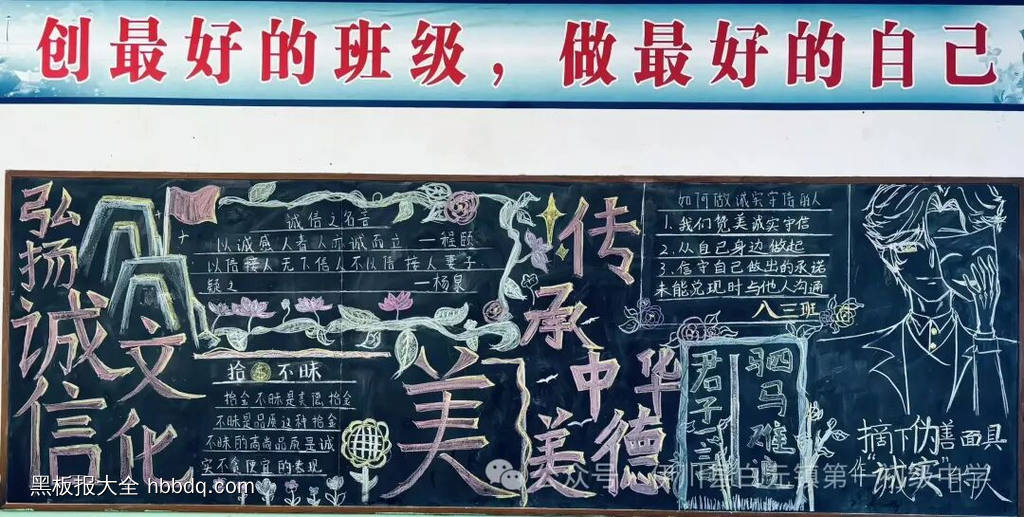 创最好的班级，做最好的自己
弘扬诚信文化
诚信之名言
以诚感人者人亦诚而应 —程颐
以信接人无下信人不以信接人妻子
疑之 —杨泉
拾金不昧
拾金不昧是美德,拾金
不昧是品质这种拾金
不昧的高尚品质是诚
实不贪便宜的表现
美
传承中华美德
如何做诚实守信的人
1.我们赞美诚实守信
2.从自己身边做起
3.信守自己做出的承诺
未能兑现时与他人沟通
八三班
君子一言
驷马难追
摘下伪善面具
作"诚实"自队
黑板报大全 hbbdq.com